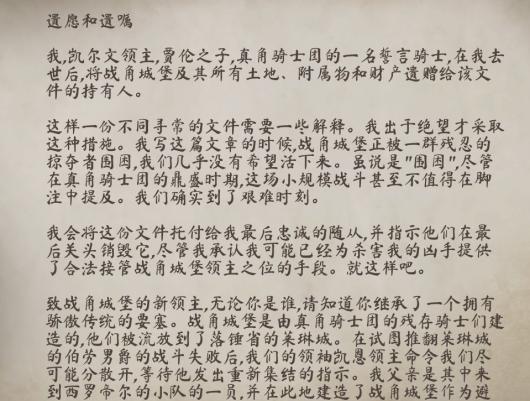 遗愿和遗嘱
我,凯尔文领主,贾伦之子,真角骑士团的一名誓言骑士,在我去
世后,将战角城堡及其所有土地、附属物和财产遗赠给该文
件的持有人。
这样一份不同寻常的文件需要一些解释。我出于绝望才采取
这种措施。我写这篇文章的时候,战角城堡正被一群残忍的
掠夺者围困,我们几乎没有希望活下来。虽说是"围困",尽管
在真角骑士团的鼎盛时期,这场小规模战斗甚至不值得在脚
注中提及。我们确实到了艰难时刻。
我会将这份文件托付给我最后忠诚的随从,并指示他们在最
后关头销毁它,尽管我承认我可能已经为杀害我的凶手提供
了合法接管战角城堡领主之位的手段。就这样吧。
致战角城堡的新领主,无论你是谁,请知道你继承了一个拥有
骄傲传统的要塞。战角城堡是由真角骑士团的残存骑士们建
造的,他们被流放到了落锤省的莱琳城。在试图推翻莱琳城
的伯劳男爵的战斗失败后,我们的领袖凯恩领主命令我们尽
可能分散开,等待他发出重新集结的指示。我父亲是其中来
到西罗帝尔的小队的一员,并在此地建造了战角城堡作为避